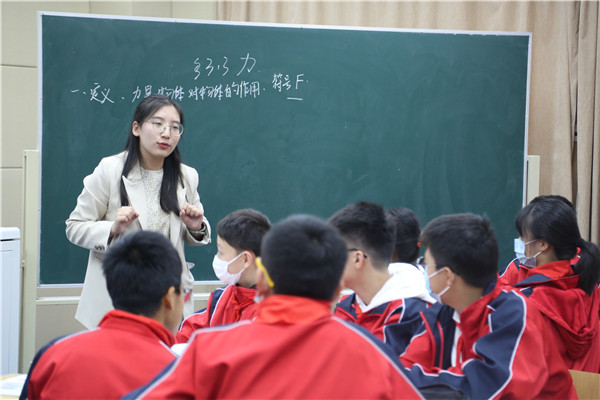 §3.3 力
一、定义、力是物体对物体的作用. 符号F.